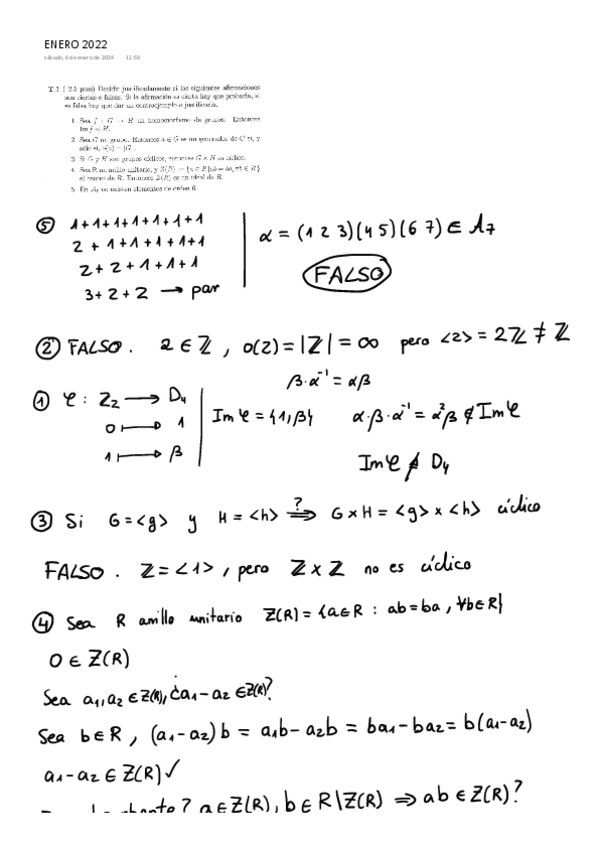 ENERO 2022
sábado, 6 de enero de 2024 11:50
T.1 ( 2.5 ptos) Decidir justificadamente si las siguientes afirmaciones
son ciertas o falsas. Si la afirmación es cierta hay que probarla, si
es falsa hay que dar un contraejemplo o justificarla.
1. Sea f : G → H un homomorfismo de grupos. Entonces
Im f ◁ H.
2. Sea G un grupo. Entonces a ∈ G es un generador de G si, y
sólo si, o(a) = |G|.
3. Si G y H son grupos cíclicos, entonces G × H es cíclico.
4. Sea R un anillo unitario, y Z(R) = {a ∈ R | ab = ba, ∀b ∈ R}
el centro de R. Entonces Z(R) es un ideal de R.
5. En A₇ no existen elementos de orden 6.
⑤ 1+1+1+1+1+1+1
2 + 1+1+1+1+1
2+2+1+1+1
3+2+2 → par
α = (1 2 3)(4 5)(6 7) ∈ A₇
FALSO
② FALSO. 2 ∈ ℤ , o(2) = |ℤ| = ∞ pero <2> = 2ℤ ≠ ℤ
① φ : ℤ₂ → D₄
0 ↦ 1
1 ↦ β
Im φ = {1, β}
β·α⁻¹ = αβ
α·β·α⁻¹ = α²β ∉ Im φ
Im φ ⋪ D₄
③ Si G = <g> y H = <h> ⟹? G×H = <g> x <h> cíclico
FALSO. ℤ = <1> , pero ℤ x ℤ no es cíclico
④ Sea R anillo unitario Z(R) = {a∈R : ab = ba, ∀b∈R}
0 ∈ Z(R)
Sea a₁, a₂ ∈ Z(R), ¿a₁ - a₂ ∈ Z(R)?
Sea b∈R , (a₁-a₂)b = a₁b - a₂b = ba₁ - ba₂ = b(a₁-a₂)
a₁ - a₂ ∈ Z(R) ✓
? a∈Z(R), b∈R\Z(R) ⟹ ab ∈ Z(R)?